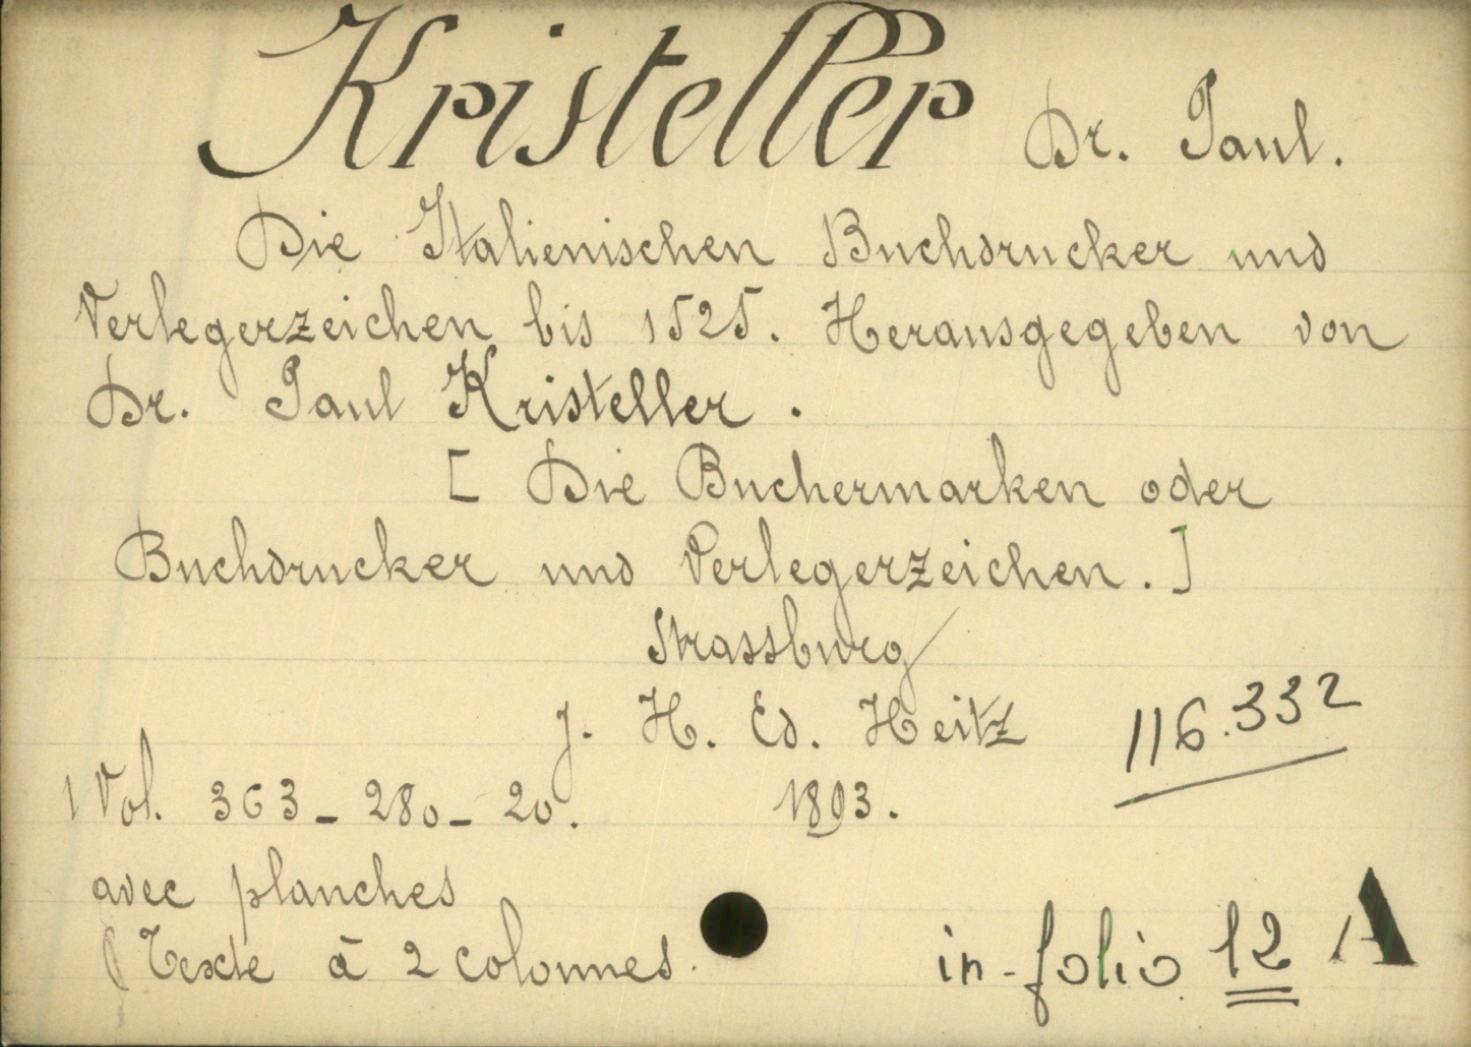 Kristeller Dr. Paul.
Die Italienischen Buchdrucker und
Verlegerzeichen bis 1525. Herausgegeben von
Dr. Paul Kristeller.
[ Die Buchermarken oder
Buchdrucker und Verlegerzeichen.]
Strassburg
J. H. Ed. Heitz
116.332
1 Vol. 363 - 280 - 20. 1893.
avec planches
(Texte à 2 colonnes.
in-folio 12 A